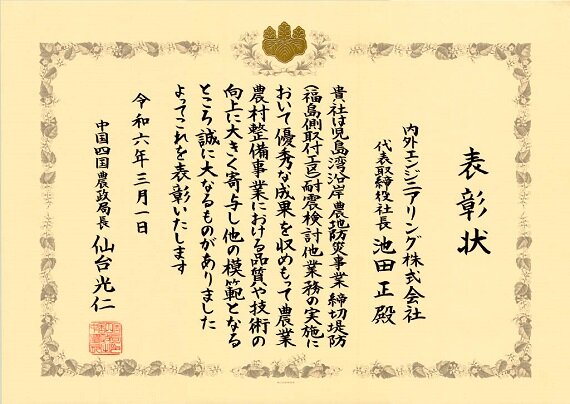 表彰状
内外エンジニアリング株式会社
代表取締役社長 池田 正 殿
貴社は児島湾沿岸農地防災事業 締切堤防
(福島側取付工区)耐震検討他業務の実施に
おいて優秀な成果を収めもって農業
農村整備事業における品質や技術の
向上に大きく寄与し他の模範となる
ところ誠に大なるものがありました
よってこれを表彰いたします
令和六年三月一日
中国四国農政局長 仙台光仁